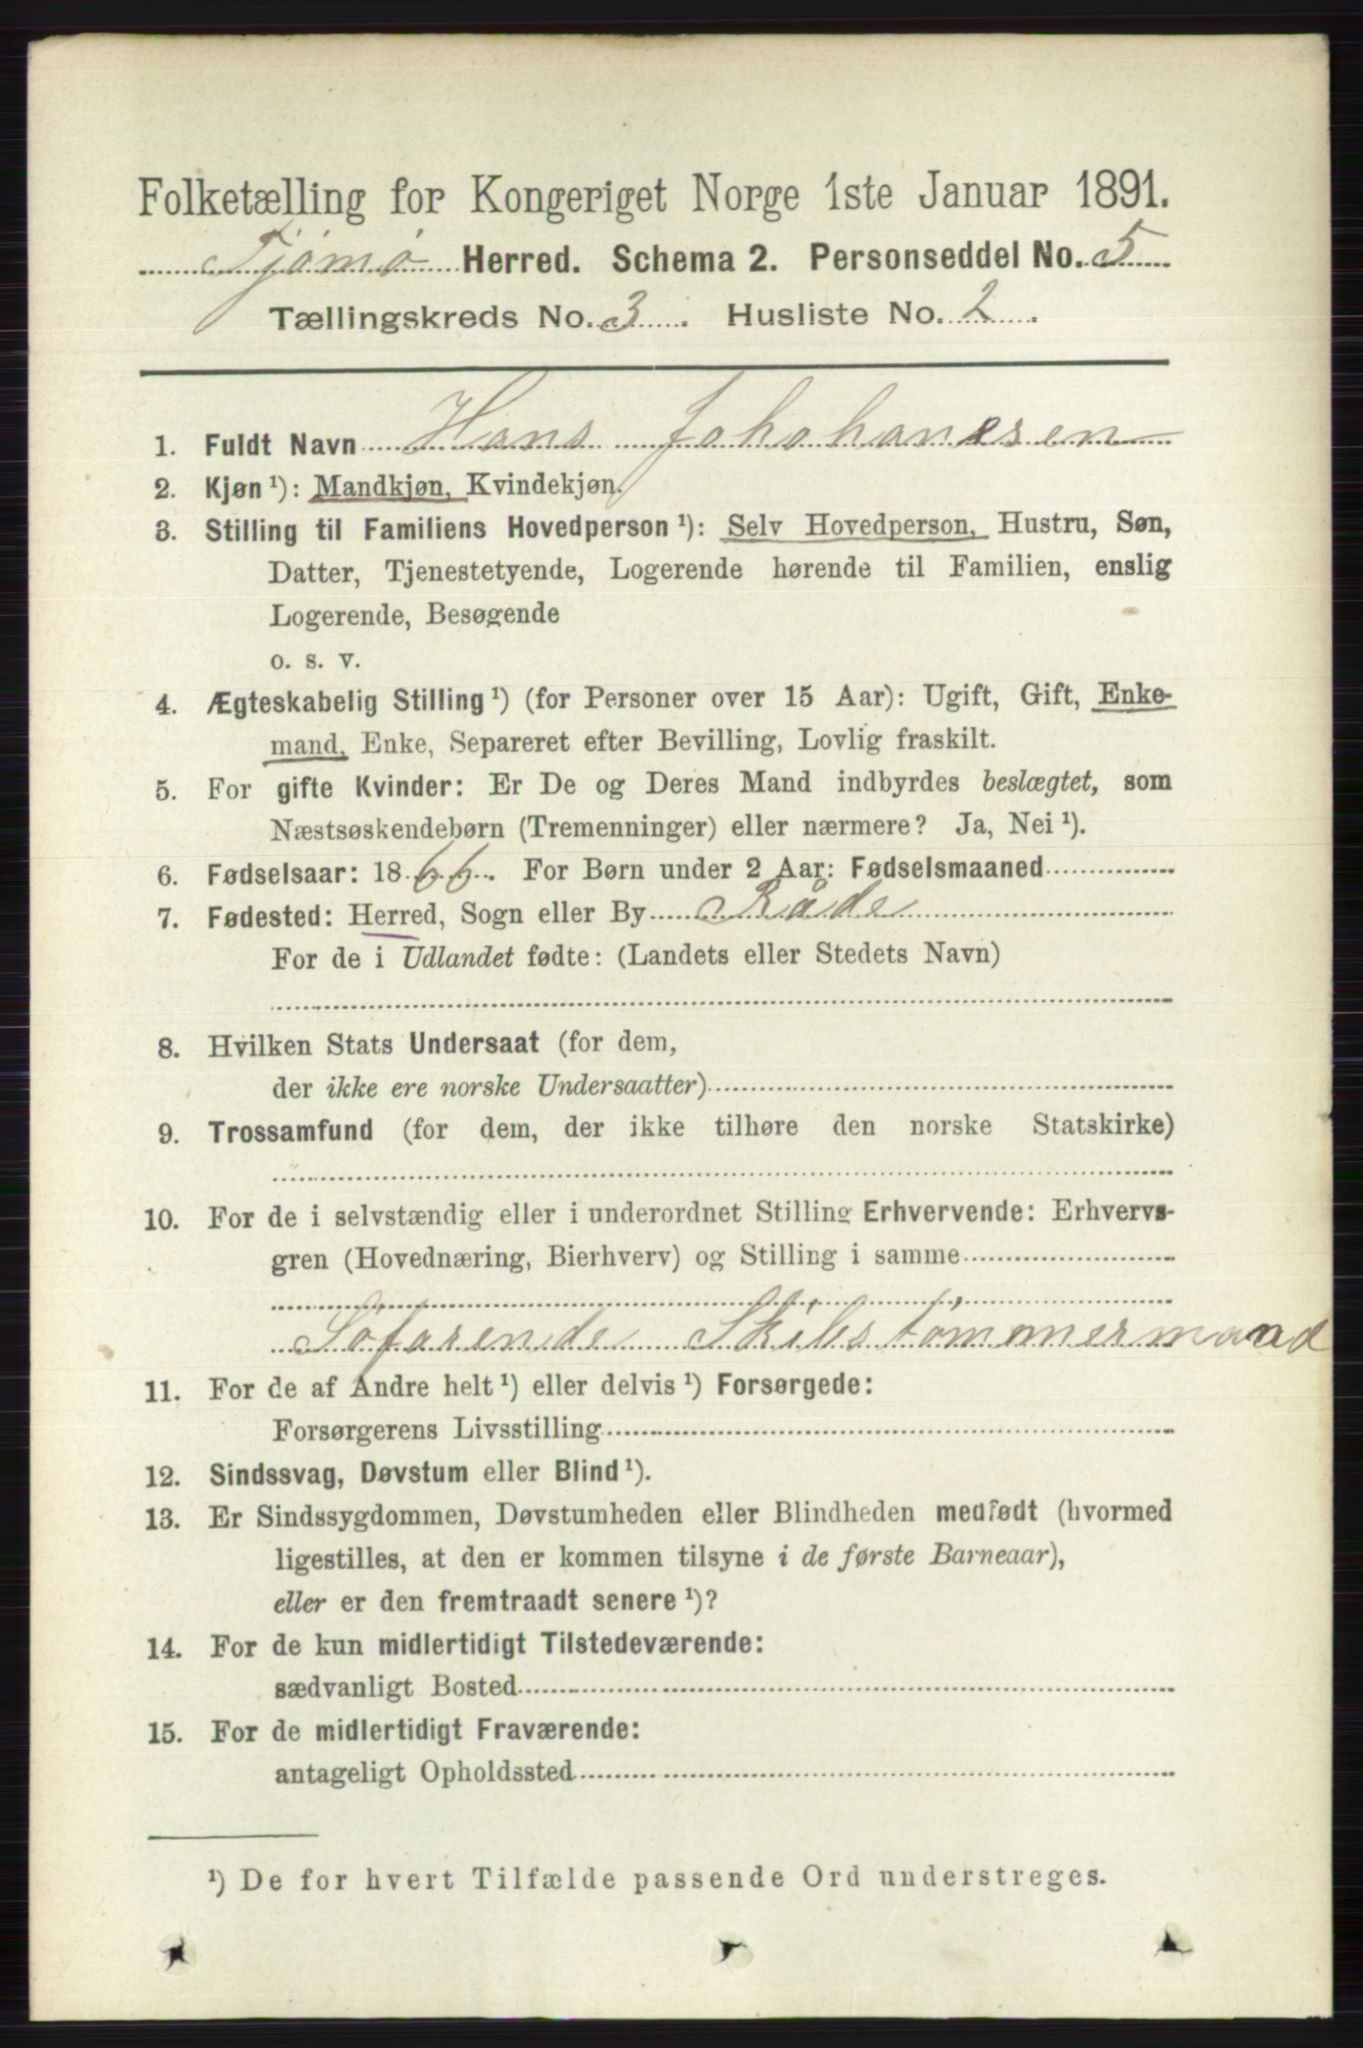 Folketælling for Kongeriget Norge 1ste Januar 1891.
Tjømø Herred. Schema 2. Personseddel No. 5
Tællingskreds No. 3. Husliste No. 2.
1. Fuldt Navn Hans Johohanesen
2. Kjøn ¹): Mandkjøn, Kvindekjøn.
3. Stilling til Familiens Hovedperson ¹): Selv Hovedperson, Hustru, Søn,
Datter, Tjenestetyende, Logerende hørende til Familien, enslig
Logerende, Besøgende
o. s. v.
4. Ægteskabelig Stilling ¹) (for Personer over 15 Aar): Ugift, Gift, Enke-
mand, Enke, Separeret efter Bevilling, Lovlig fraskilt.
5. For gifte Kvinder: Er De og Deres Mand indbyrdes beslægtet, som
Næstsøskendebørn (Tremenninger) eller nærmere? Ja, Nei ¹).
6. Fødselsaar: 1866. For Børn under 2 Aar: Fødselsmaaned
7. Fødested: Herred, Sogn eller By Råde
For de i Udlandet fødte: (Landets eller Stedets Navn)
8. Hvilken Stats Undersaat (for dem,
der ikke ere norske Undersaatter)
9. Trossamfund (for dem, der ikke tilhøre den norske Statskirke)
10. For de i selvstændig eller i underordnet Stilling Erhvervende: Erhvervs-
gren (Hovednæring, Bierhverv) og Stilling i samme
Søfarende Skibstømmermand
11. For de af Andre helt ¹) eller delvis ¹) Forsørgede:
Forsørgerens Livsstilling
12. Sindssvag, Døvstum eller Blind ¹).
13. Er Sindssygdommen, Døvstumheden eller Blindheden medfødt (hvormed
ligestilles, at den er kommen tilsyne i de første Barneaar),
eller er den fremtraadt senere ¹)?
14. For de kun midlertidigt Tilstedeværende:
sædvanligt Bosted
15. For de midlertidigt Fraværende:
antageligt Opholdssted
¹) De for hvert Tilfælde passende Ord understreges.